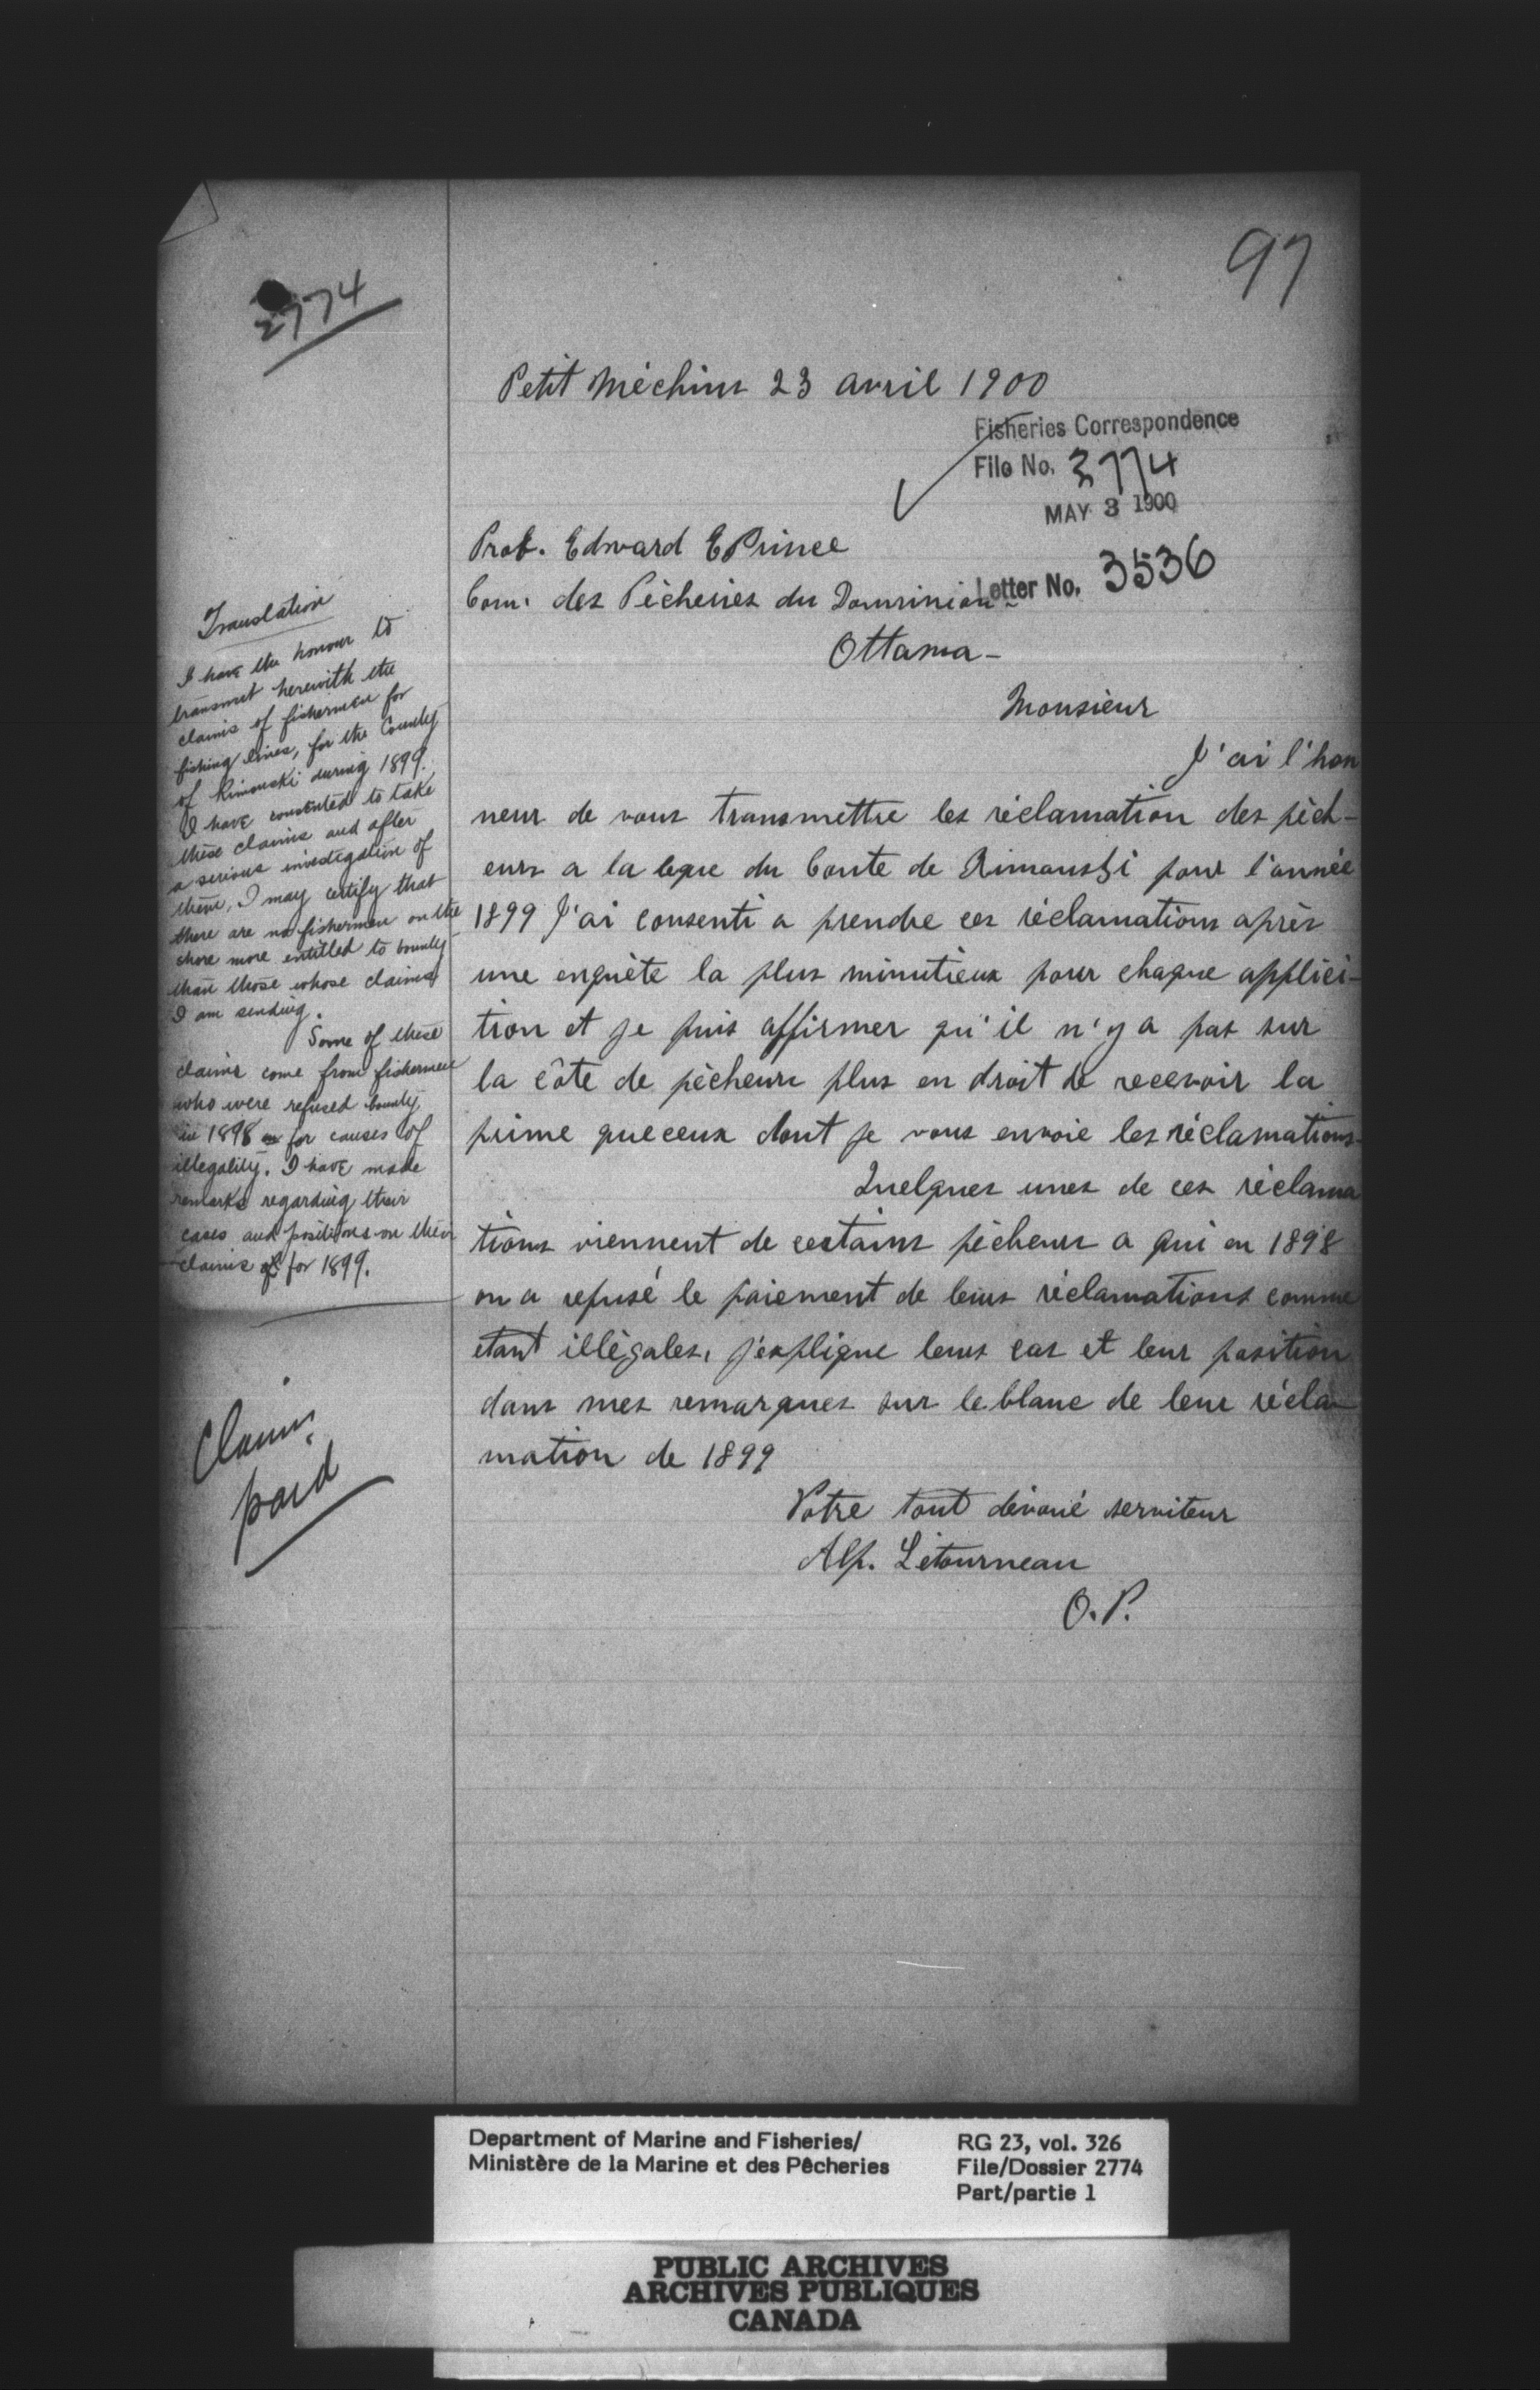 97
2774
Petit Méchins 23 avril 1900
Fisheries Correspondence
File No. 2774
MAY 3 1900
Letter No. 3536
Prof. Edward E Prince
Com. des Pêcheries du Dominion
Ottawa -
Monsieur
J'ai l'hon
neur de vous transmettre les réclamation des pêch-
eurs a la ligne du Comte de Rimouski pour l'année
1899 J'ai consenti a prendre ces réclamations après
une enquête la plus minutieux pour chaque applici-
tion et je puis affirmer qu'il n'y a pas sur
la côte de pêcheurs plus en droit de recevoir la
prime que ceux dont je vous envoie les réclamations.
Quelques unes de ces réclama
tions viennent de certains pêcheurs a qui en 1898
on a refusé le paiement de leurs réclamations comme
etant illégales, j'explique leurs cas et leur position
dans mes remarques sur le blanc de leur récla-
mation de 1899
Votre tout dévoué serviteur
Alp. Létourneau
O.P.
Translation
I have the honour to
transmit herewith the
claims of fishermen for
fishing lines, for the County
of Rimouski during 1899.
I have consented to take
these claims and after
a serious investigation of
them, I may certify that
there are no fishermen on the
shore more entitled to bounty
than those whose claims
I am sending.
Some of these
claims come from fishermen
who were refused bounty
in 1898 for causes of
illegality. I have made
remarks regarding their
cases and positions on their
claims for 1899.
Claims
paid
Department of Marine and Fisheries/
Ministère de la Marine et des Pêcheries
RG 23, vol. 326
File/Dossier 2774
Part/partie 1
PUBLIC ARCHIVES
ARCHIVES PUBLIQUES
CANADA